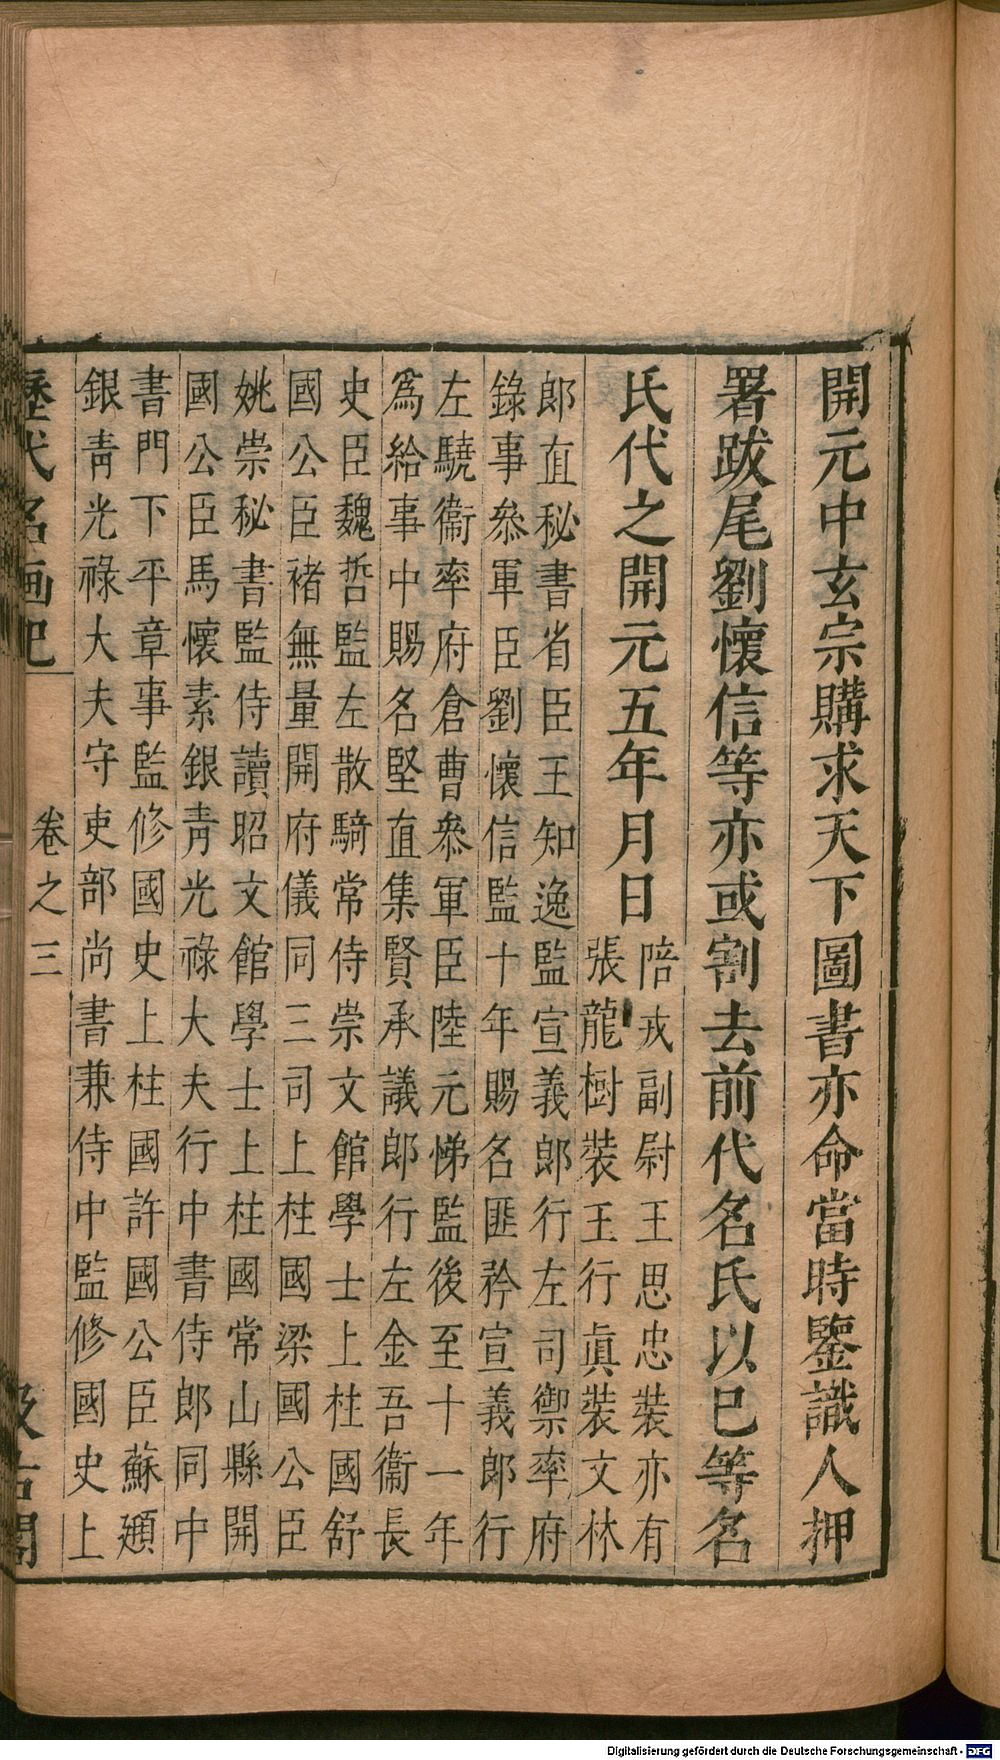 開元中玄宗購求天下圖書亦命當時鑒識人押
署跋尾劉懷信等亦或割去前代名氏以已等名
氏代之開元五年月日
陪戎副尉王思忠裝亦有
張龍樹裝王行眞裝文林
郎直秘書省臣王知逸監宣義郎行左司禦率府
錄事叅軍臣劉懷信監十年賜名匪矜宣義郎行
左驍衞率府倉曹叅軍臣陸元悌監後至十一年
爲給事中賜名堅直集賢承議郎行左金吾衞長
史臣魏哲監左散騎常侍崇文館學士上柱國舒
國公臣褚無量開府儀同三司上柱國梁國公臣
姚崇秘書監侍讀昭文館學士上柱國常山縣開
國公臣馬懷素銀靑光祿大夫行中書侍郎同中
書門下平章事監修國史上柱國許國公臣蘇頲
銀靑光祿大夫守吏部尚書兼侍中監修國史上
歷代名画記
卷之三
汲古閣
Digitalisierung gefördert durch die Deutsche Forschungsgemeinschaft - DFG